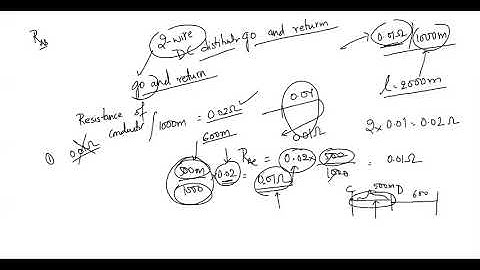 2-wire
DC distributn go and return
0.01Ω / 1000m
go and return
l = 2000m
Resistance of
conductor / 1000m = 0.02Ω
0.01
0.01Ω
600m
2 x 0.01 = 0.02Ω
① 0.01Ω
500m / 1000 x 0.02 = 0.01Ω
= 0.02 x 500 / 1000 = 0.01Ω
C 500m D 600